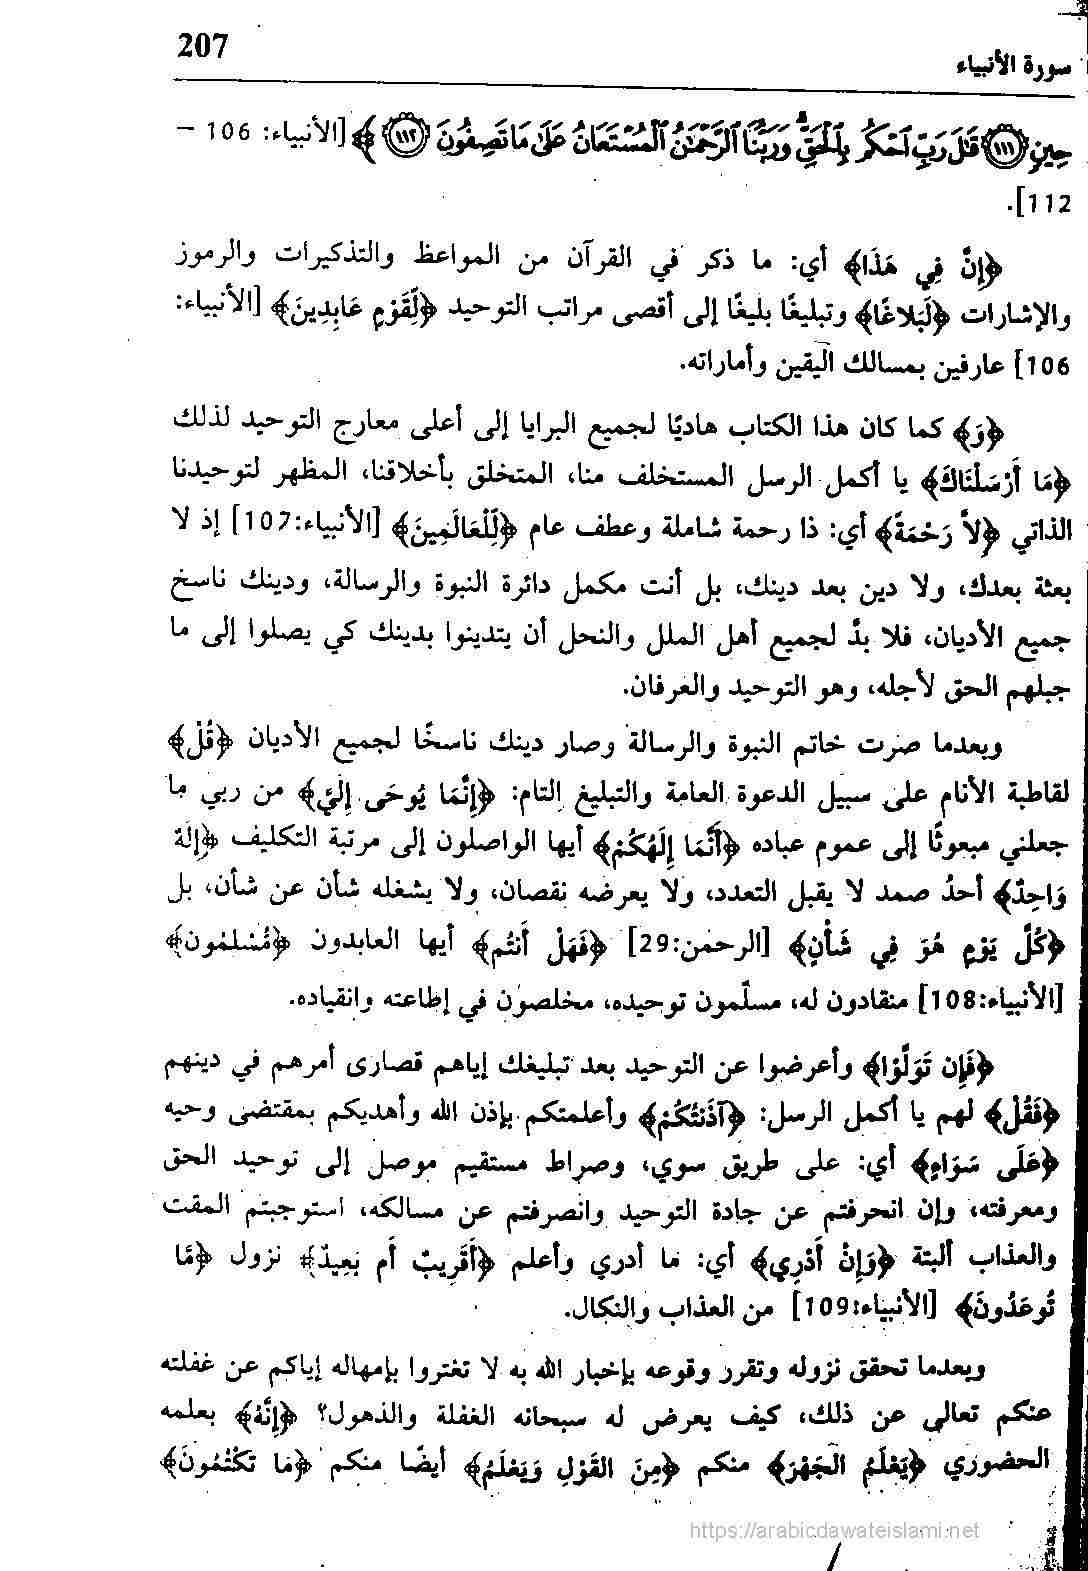 207
سورة الأنبياء
حِينٍ ﴿١١١﴾ قَالَ رَبِّ احْكُم بِالْحَقِّ وَرَبُّنَا الرَّحْمَٰنُ الْمُسْتَعَانُ عَلَىٰ مَا تَصِفُونَ ﴿١١٢﴾ [الأنبياء: 106 –
112].
﴿إِنَّ فِي هَذَا﴾ أي: ما ذكر في القرآن من المواعظ والتذكيرات والرموز
والإشارات ﴿لَبَلاغًا﴾ وتبليغًا بليغًا إلى أقصى مراتب التوحيد ﴿لِّقَوْمٍ عَابِدِينَ﴾ [الأنبياء:
106] عارفين بمسالك اليقين وأماراته.
﴿وَ﴾ كما كان هذا الكتاب هاديًا لجميع البرايا إلى أعلى معارج التوحيد لذلك
﴿مَا أَرْسَلْنَاكَ﴾ يا أكمل الرسل المستخلف منا، المتخلق بأخلاقنا، المظهر لتوحيدنا
الذاتي ﴿لاَّ رَحْمَةً﴾ أي: ذا رحمة شاملة وعطف عام ﴿لِّلْعَالَمِينَ﴾ [الأنبياء:107] إذ لا
بعثة بعدك، ولا دين بعد دينك، بل أنت مكمل دائرة النبوة والرسالة، ودينك ناسخ
جميع الأديان، فلا بدَّ لجميع أهل الملل والنحل أن يتدينوا بدينك كي يصلوا إلى ما
جبلهم الحق لأجله، وهو التوحيد والعرفان.
وبعدما صرت خاتم النبوة والرسالة وصار دينك ناسخًا لجميع الأديان ﴿قُلْ﴾
لقاطبة الأنام على سبيل الدعوة العامة والتبليغ التام: ﴿إِنَّمَا يُوحَى إِلَيَّ﴾ من ربي ما
جعلني مبعوثًا إلى عموم عباده ﴿أَنَّمَا إِلَهُكُمْ﴾ أيها الواصلون إلى مرتبة التكليف ﴿إِلَهٌ
وَاحِدٌ﴾ أحدٌ صمد لا يقبل التعدد، ولا يعرضه نقصان، ولا يشغله شأن عن شأن، بل
﴿كُلَّ يَوْمٍ هُوَ فِي شَأْنٍ﴾ [الرحمن:29] ﴿فَهَلْ أَنتُم﴾ أيها العابدون ﴿مُّسْلِمُون﴾
[الأنبياء:108] منقادون له، مسلّمون توحيده، مخلصون في إطاعته وانقياده.
﴿فَإِن تَوَلَّوْا﴾ وأعرضوا عن التوحيد بعد تبليغك إياهم قصارى أمرهم في دينهم
﴿فَقُلْ﴾ لهم يا أكمل الرسل: ﴿آذَنتُكُمْ﴾ وأعلمتكم بإذن الله وأهديكم بمقتضى وحيه
﴿عَلَى سَوَاءٍ﴾ أي: على طريق سوي، وصراط مستقيم موصل إلى توحيد الحق
ومعرفته، وإن انحرفتم عن جادة التوحيد وانصرفتم عن مسالكه، استوجبتم المقت
والعذاب ألبتة ﴿وَإِنْ أَدْرِي﴾ أي: ما أدري وأعلم ﴿أَقَرِيبٌ أَم بَعِيدٌ﴾ نزول ﴿مَّا
تُوعَدُونَ﴾ [الأنبياء:109] من العذاب والنكال.
وبعدما تحقق نزوله وتقرر وقوعه بإخبار الله به لا تغتروا بإمهاله إياكم عن غفلته
عنكم تعالى عن ذلك، كيف يعرض له سبحانه الغفلة والذهول؟ ﴿إِنَّهُ﴾ بعلمه
الحضوري ﴿يَعْلَمُ الْجَهْرَ﴾ منكم ﴿مِنَ القَوْلِ وَيَعْلَمُ﴾ أيضًا منكم ﴿مَا تَكْتُمُونَ﴾
https://arabicdawateislami.net